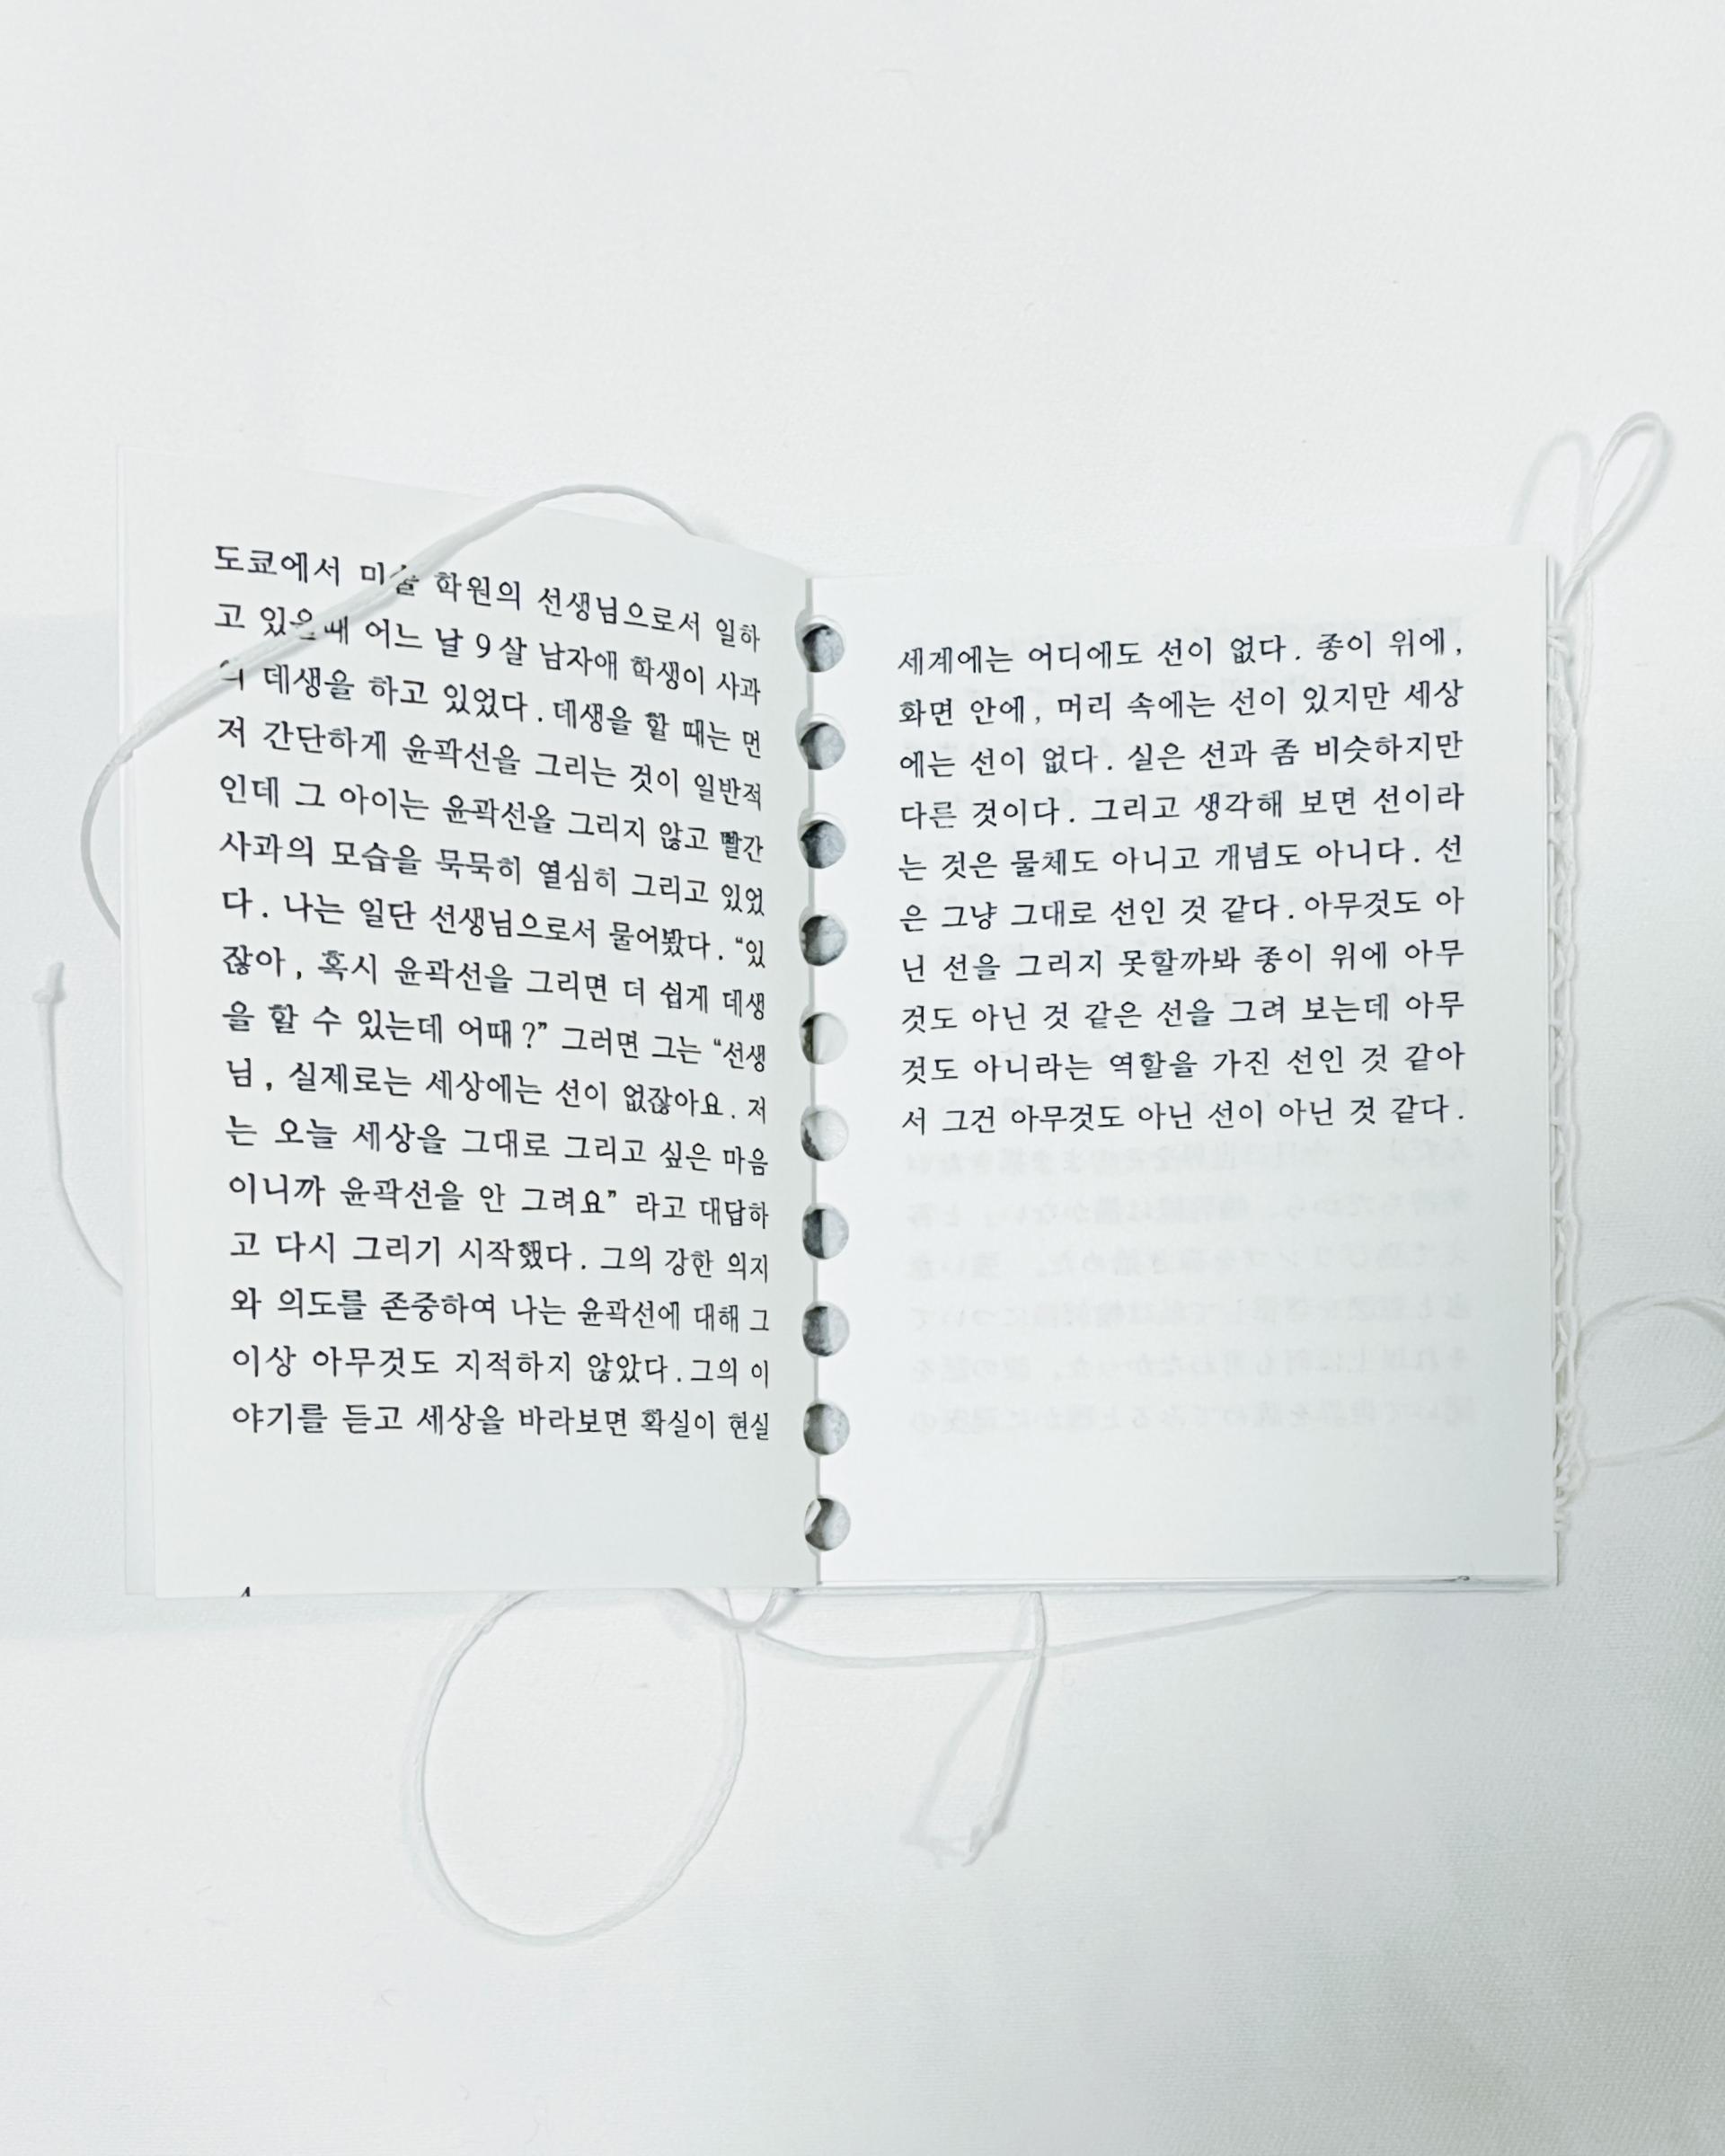 도쿄에서 학원의 선생님으로서 일하
고 어느 날 9살 남자애 학생이 사과
데생을 하고 있었다. 데생을 할 때는 먼
저 간단하게 윤곽선을 그리는 것이 일반적
인데 그 아이는 윤곽선을 그리지 않고 빨간
사과의 모습을 묵묵히 열심히 그리고 있었
다. 나는 일단 선생님으로서 물어봤다. “있
잖아, 혹시 윤곽선을 그리면 더 쉽게 데생
을 할 수 있는데 어때?” 그러면 그는 “선생
님, 실제로는 세상에는 선이 없잖아요. 저
는 오늘 세상을 그대로 그리고 싶은 마음
이니까 윤곽선을 안 그려요” 라고 대답하
고 다시 그리기 시작했다. 그의 강한 의지
와 의도를 존중하여 나는 윤곽선에 대해 그
이상 아무것도 지적하지 않았다. 그의 이
야기를 듣고 세상을 바라보면 확실이 현실
세계에는 어디에도 선이 없다. 종이 위에,
화면 안에, 머리 속에는 선이 있지만 세상
에는 선이 없다. 실은 선과 좀 비슷하지만
다른 것이다. 그리고 생각해 보면 선이라
는 것은 물체도 아니고 개념도 아니다. 선
은 그냥 그대로 선인 것 같다. 아무것도 아
닌 선을 그리지 못할까봐 종이 위에 아무
것도 아닌 것 같은 선을 그려 보는데 아무
것도 아니라는 역할을 가진 선인 것 같아
서 그건 아무것도 아닌 선이 아닌 것 같다.